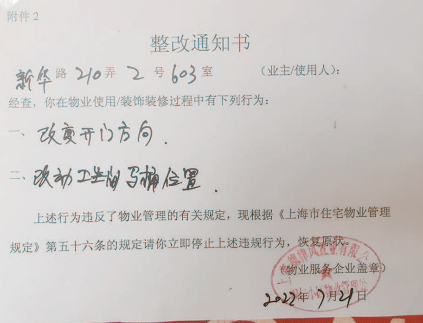 附件2
整改通知书
新华路210弄2号603室 (业主/使用人):
经查,你在物业使用/装饰装修过程中有下列行为:
一、改变开门方向.
二、改动卫生间马桶位置.
上述行为违反了物业管理的有关规定,现根据《上海市住宅物业管理
规定》第五十六条的规定请你立即停止上述违规行为,恢复原状。
(物业服务企业盖章)
2022年7月21日